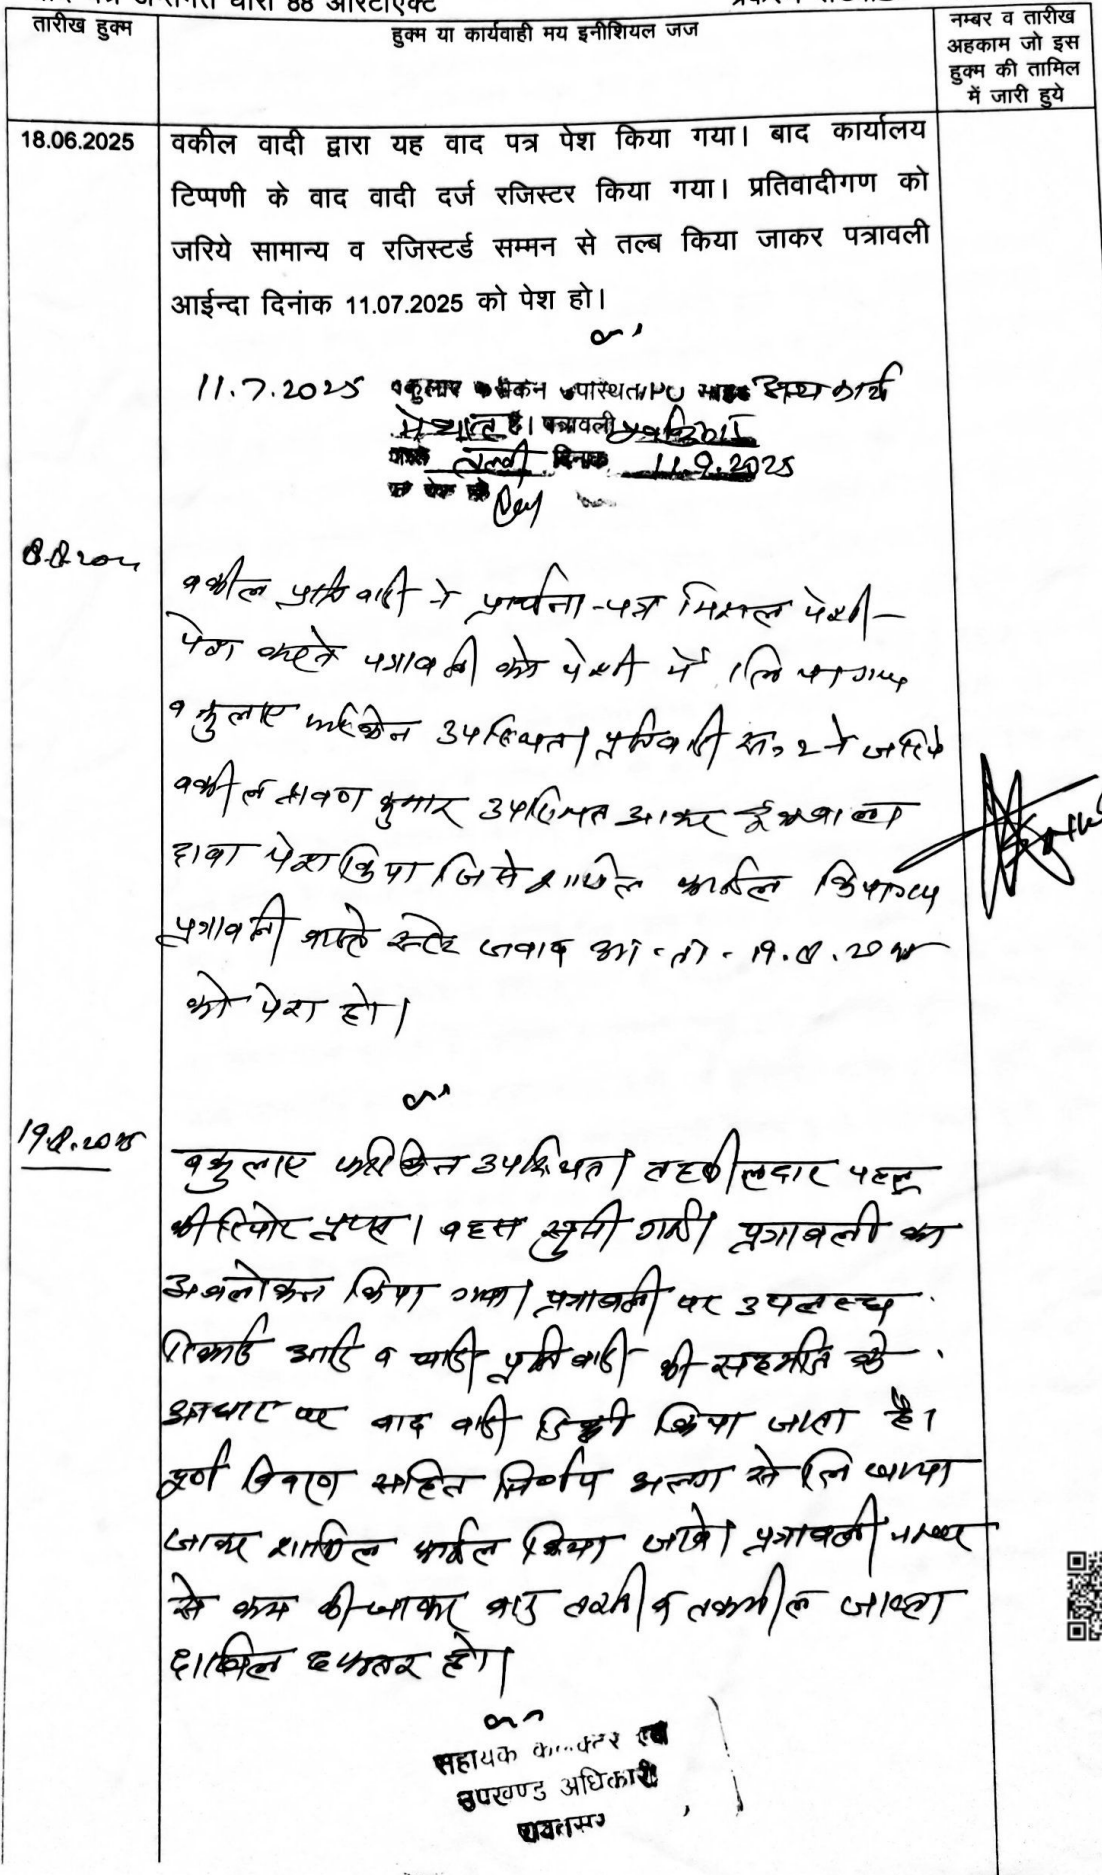 अन्तर्गत धारा 88 आरटीएक्ट
तारीख हुक्म
हुक्म या कार्यवाही मय इनीशियल जज
नम्बर व तारीख
अहकाम जो इस
हुक्म की तामिल
में जारी हुये
18.06.2025
वकील वादी द्वारा यह वाद पत्र पेश किया गया। बाद कार्यालय
टिप्पणी के वाद वादी दर्ज रजिस्टर किया गया। प्रतिवादीगण को
जरिये सामान्य व रजिस्टर्ड सम्मन से तल्ब किया जाकर पत्रावली
आईन्दा दिनांक 11.07.2025 को पेश हो।
11.7.2025 वकुलाए उपस्थित। PO अन्य कार्य
में व्यस्त है। पत्रावली
तल्बी दिनांक 11.9.2025
वकील प्रतिवादी ने प्रार्थना-पत्र मिसल पेशी
पेश करने पत्रावली को पेशी में लिया गया
वकुलाए फरिकेन उपस्थित। प्रतिवादी सं. 2 ने जरिये
वकील श्रवण कुमार उपस्थित आकर ईकबाल
दावा पेश किया जिसे शामिल फाईल किया गया
पत्रावली वास्ते स्टेट जवाब आ.ता. 19.8.2025
को पेश हो।
19.8.2025
वकुलाए फरिकेन उपस्थित। तहसीलदार पल्लू
की रिपोर्ट प्राप्त। बहस सुनी गई। पत्रावली का
अवलोकन किया गया। पत्रावली पर उपलब्ध
रिकार्ड आदि व वादी प्रतिवादी की सहमति के
आधार पर वाद वादी डिक्री किया जाता है।
पूर्ण विवरण सहित निर्णय अलग से लिखाया
जाकर शामिल फाईल किया जावे। पत्रावली नम्बर
से कम की जाकर बाद तरतीब तकमील जाब्ता
दाखिल दफ्तर हो।
सहायक कलक्टर एवं
उपखण्ड अधिकारी
रावतसर